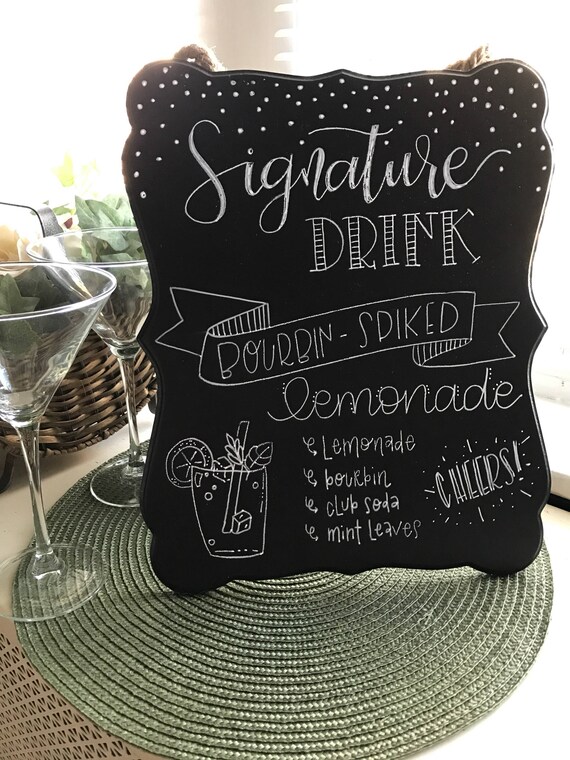 Signature
DRINK
BOURBIN-SPIKED
lemonade
Lemonade
bourbin
club soda
mint leaves
CHEERS!